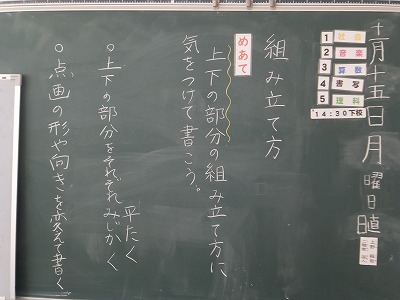 十月十五日月曜日
日直
1 社会
2 音楽
3 算数
4 書写
5 理科
14:30下校
組み立て方
めあて
上下の部分の組み立て方に
気をつけて書こう。
○上下の部分をそれぞれみじかく
平たく
○点画の形や向きを変えて書く